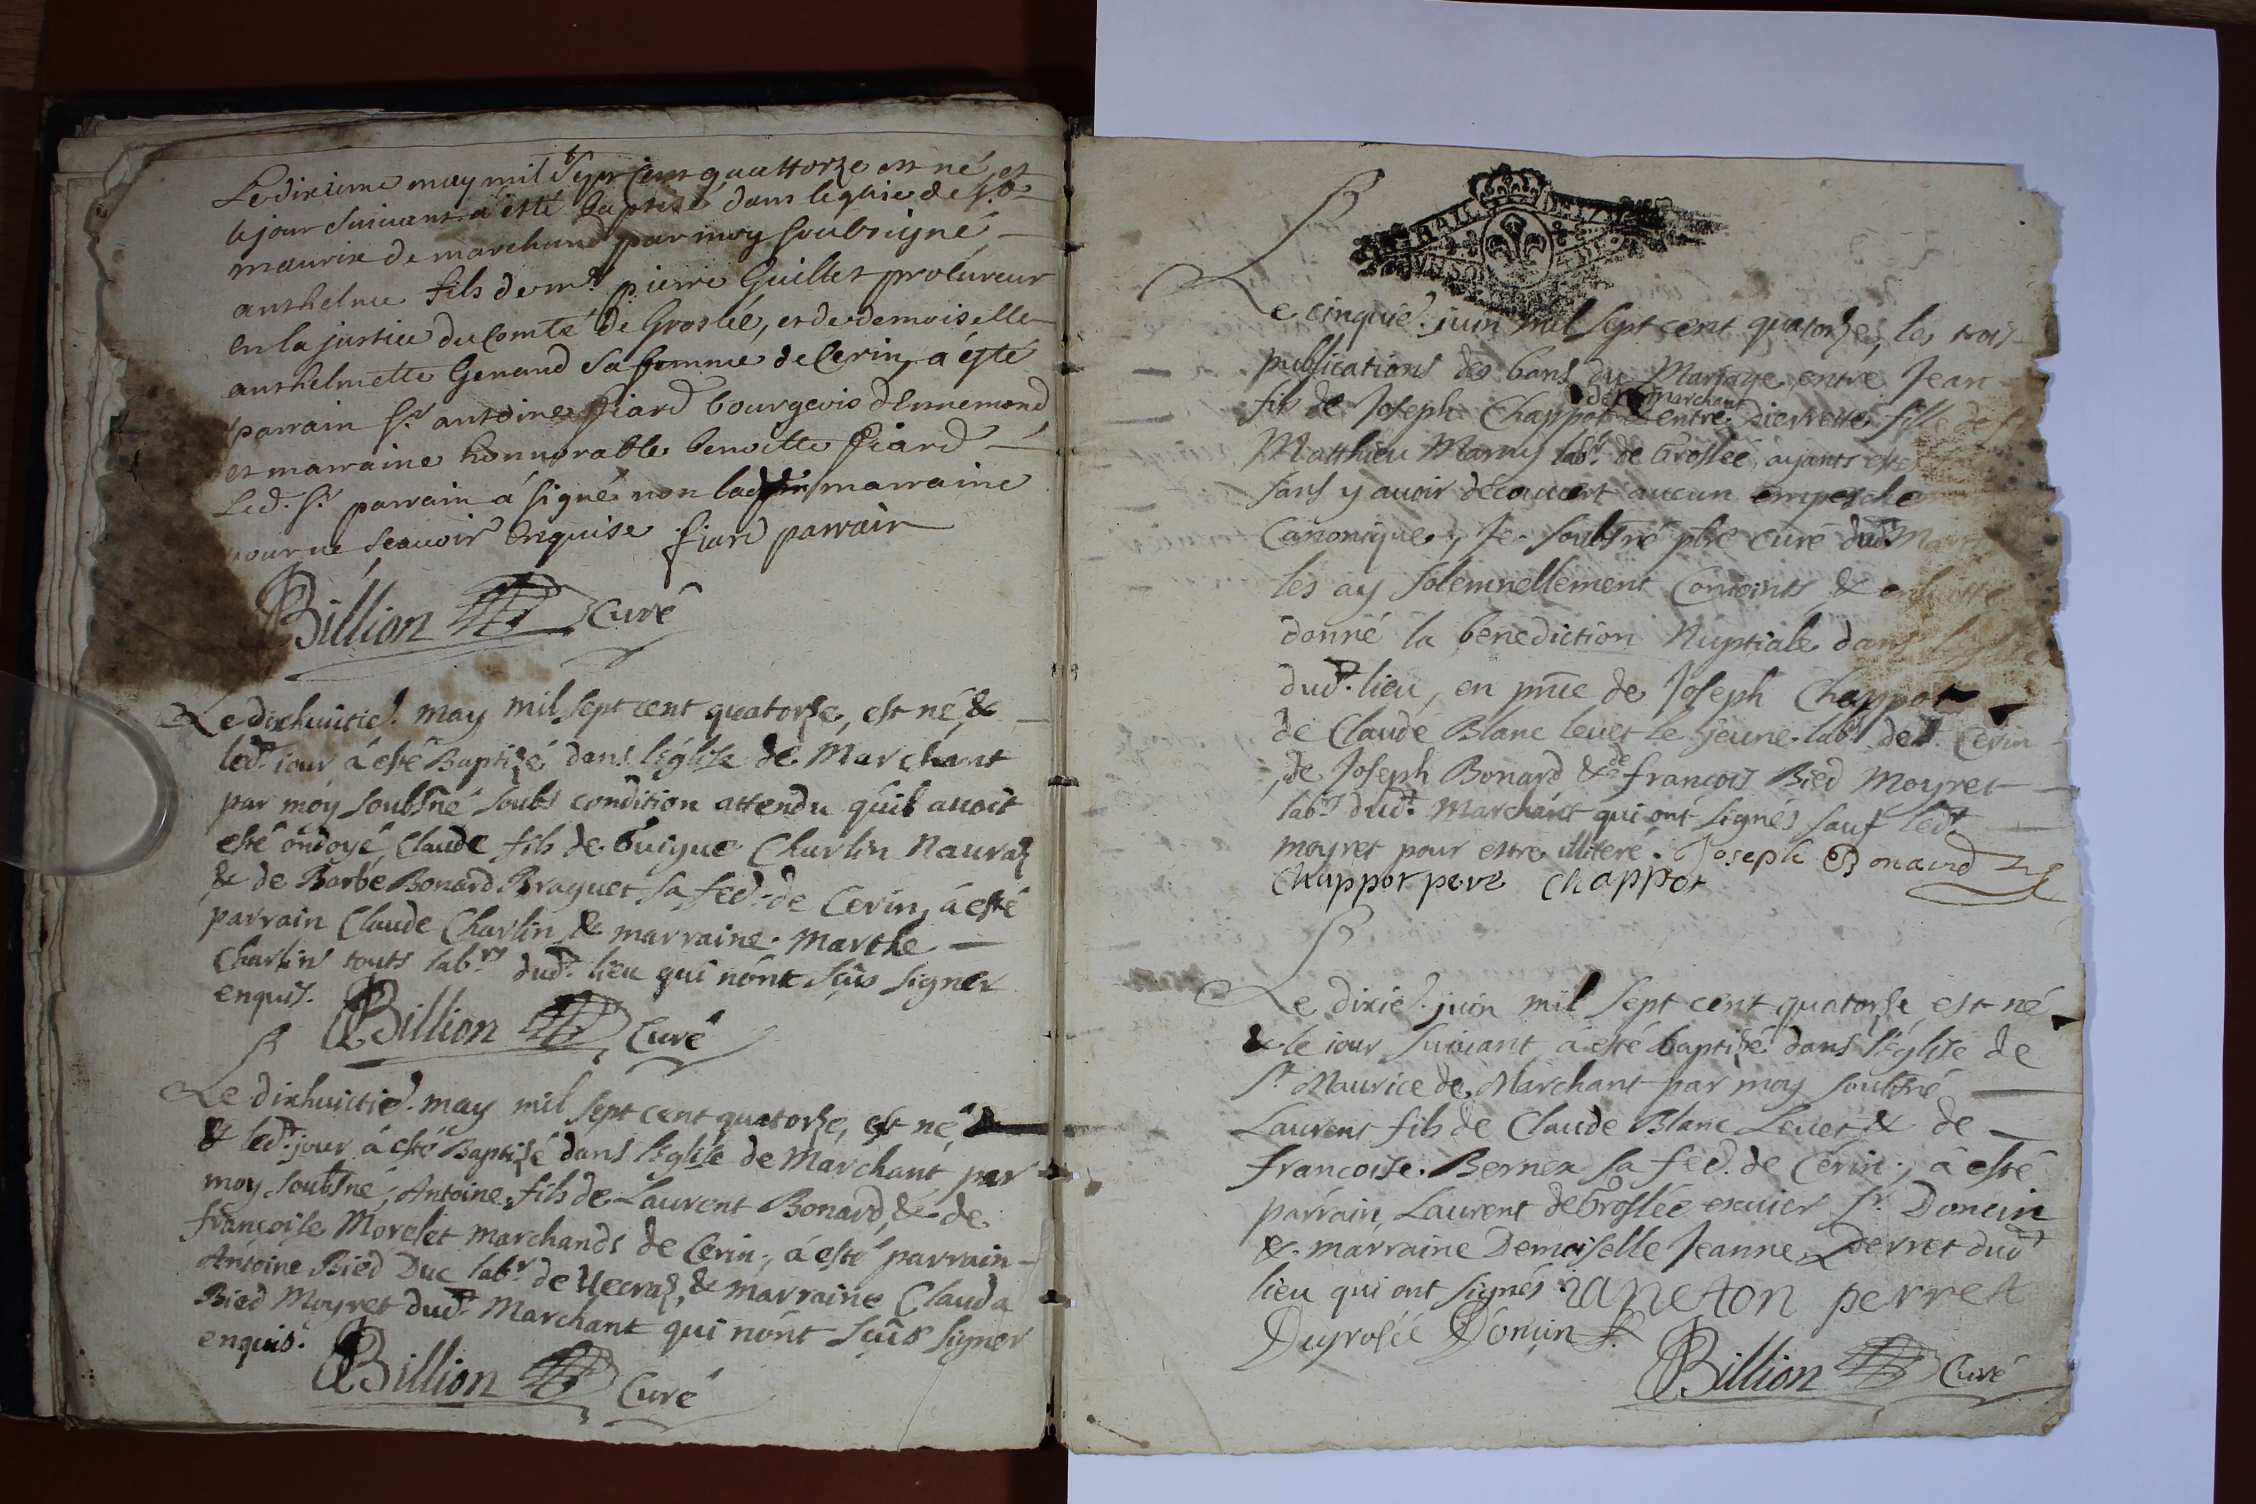 Le dixieme may mil sept cens quattorze est né et
le jour suivant a esté baptisé dans leglise de st
maurice de marchand par moy soubsigné
anthelme fils de mr pierre Guillet procureur
en la justice du Comté de Groslée, et de demoiselle
anthelmette Genand sa femme de Cerin, a ésté
parrain sr antoine fiard bourgeois dennemond
et marraine honnorable benoitte fiard
Led. sr parrain á signé non lad. marraine
pour ne scavoir enquise fiard parrain
Billion Curé
Le dixhuictie. may mil sept cent quatorze, est né &
led. iour á esté Baptizé dans l'église de Marchant
par moy soubsné soubs condition attendu quil avoit
esté ondoyé, Claude fils de Guigue Charlin Nauraz
& de Barbe Bonard Braguet sa fe. de Cerin, á esté
parrain Claude Charlin & marraine Marthe
Charlin touts labrs dud. lieu qui nont sçus signer
enquis. Billion Curé
Le dixhuictie. may mil sept cent quatorze, est né
& led. jour á esté Baptizé dans l'église de Marchant par
moy soubsné, Antoine fils de Laurent Bonard, & de
françoise Morelet marchands de Cerin, á esté parrain
Antoine Bied Duc labr de Uecraz, & marraine Clauda
Bied Moyret dud. Marchant qui nont sçus signer
enquis. Billion Curé
Le cinquie. juin mil sept cent quatorze, les trois
publications des bans du Mariage entre Jean
fils de Joseph Chappot de Marchant & entre Pierrette fille de
Matthieu Marny labr. de Groslée, ayants estés
sans y avoir découvert aucun empesche
Canonique, Je soubsné pbre curé dud. March
les ay solemnellement conioints &
donné la benediction Nuptiale dans l'église
dud. lieu, en pnce de Joseph Chappot
de Claude Blanc levet le jeune labr de Cerin
de Joseph Bonard & de françois Bied Moyret
labrs dud. Marchant qui ont signés sauf led.
moyret pour estre illiteré. Joseph Bonard
Chappot pere Chappot
Le dixie. juin mil sept cent quatorze est né
& le iour suivant á esté baptizé dans l'Église de
St Maurice de Marchant par moy soubsné
Laurent fils de Claude Blanc Levet & de
francoise Bernex sa fe. de Cerin, á esté
parrain Laurent de Groslée escuier sr Doncin
& marraine Demoiselle Jeanne Perret dud.
lieu qui ont signés janeton perret
Degrolée Doncin
Billion Curé